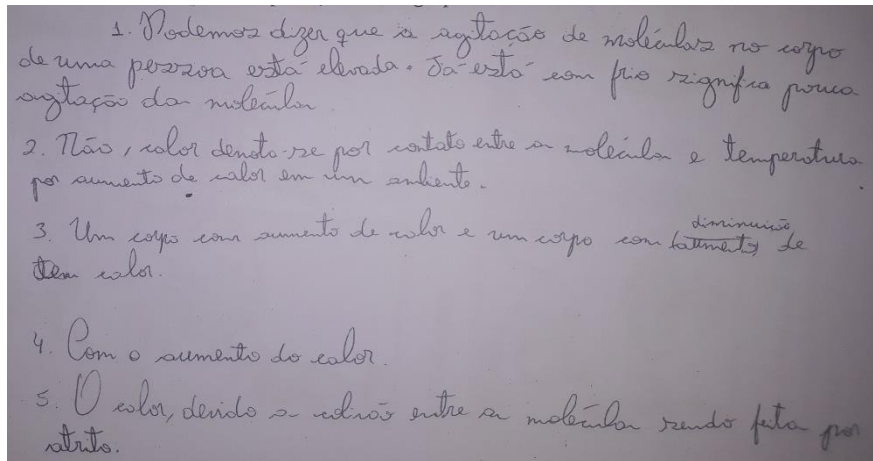 1. Podemos dizer que a agitação de moléculas no corpo
de uma pessoa está elevada. Já está com frio significa pouca
agitação da molécula.
2. Não, calor denota-se por contato entre a molécula e temperatura
por aumento de calor em um ambiente.
3. Um corpo com aumento de calor e um corpo com (aumento) diminuição de
tem calor.
4. Com o aumento do calor.
5. O calor, devido a colisão entre a molécula sendo feita por
atrito.